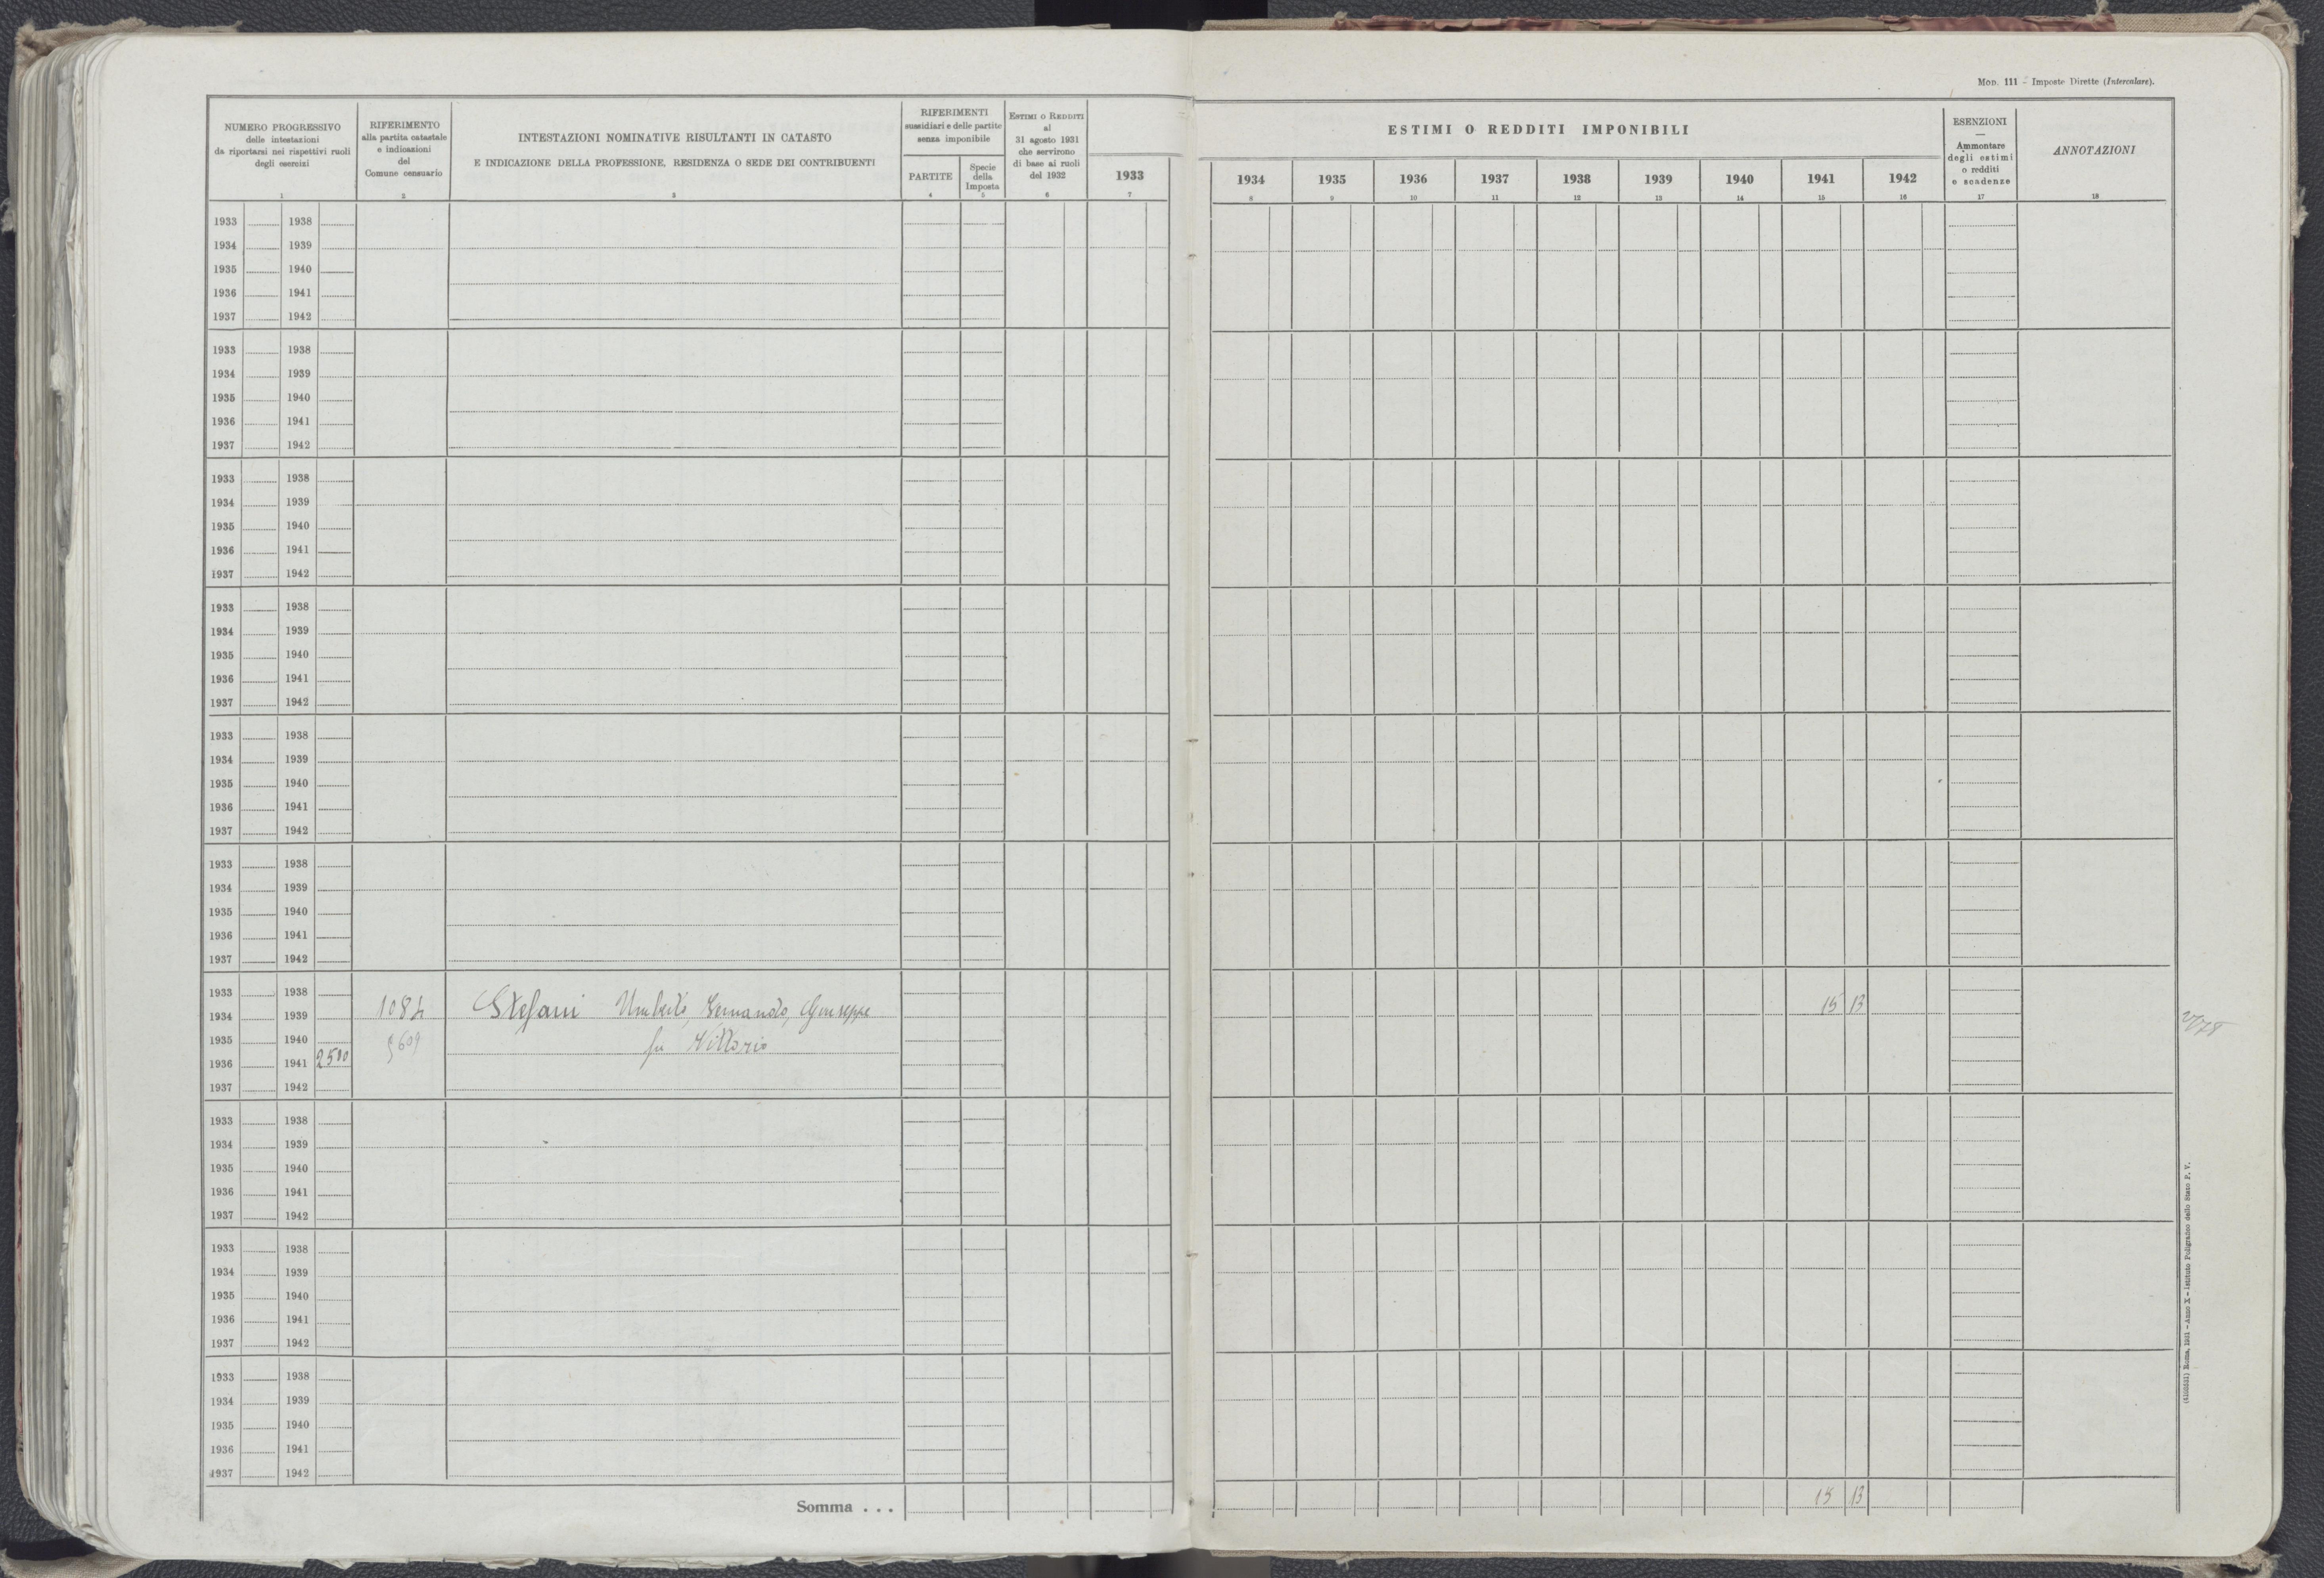 Mod. 111 – Imposte Dirette (Intercalare).
NUMERO PROGRESSIVO
delle intestazioni
da riportarsi nei rispettivi ruoli
degli esercizi
1
RIFERIMENTO
alla partita catastale
e indicazioni
del
Comune censuario
2
INTESTAZIONI NOMINATIVE RISULTANTI IN CATASTO
E INDICAZIONE DELLA PROFESSIONE, RESIDENZA O SEDE DEI CONTRIBUENTI
3
RIFERIMENTI
sussidiari e delle partite
senza imponibile
PARTITE
4
Specie
della
Imposta
5
ESTIMI O REDDITI
al
31 agosto 1931
che servirono
di base ai ruoli
del 1932
6
1933
7
ESTIMI O REDDITI IMPONIBILI
1934 1935 1936 1937 1938 1939 1940 1941 1942
8 9 10 11 12 13 14 15 16
ESENZIONI
—
Ammontare
degli estimi
o redditi
e scadenze
17
ANNOTAZIONI
18
1933 1938
1934 1939
1935 1940
1936 1941
1937 1942
1933 1938
1934 1939
1935 1940
1936 1941
1937 1942
1933 1938
1934 1939
1935 1940
1936 1941
1937 1942
1933 1938
1934 1939
1935 1940
1936 1941
1937 1942
1933 1938
1934 1939
1935 1940
1936 1941
1937 1942
1933 1938
1934 1939
1935 1940
1936 1941
1937 1942
1933 1938
1934 1939 Stefani Umberto, Fernando, Giuseppe 15 13
1935 1940 fu Vittorio
1936 1941 2500
1937 1942
1933 1938
1934 1939
1935 1940
1936 1941
1937 1942
1933 1938
1934 1939
1935 1940
1936 1941
1937 1942
1933 1938
1934 1939
1935 1940
1936 1941
1937 1942
Somma . . . 15 13
(4103531) Roma, 1931 – Anno X – Istituto Poligrafico dello Stato P. V.